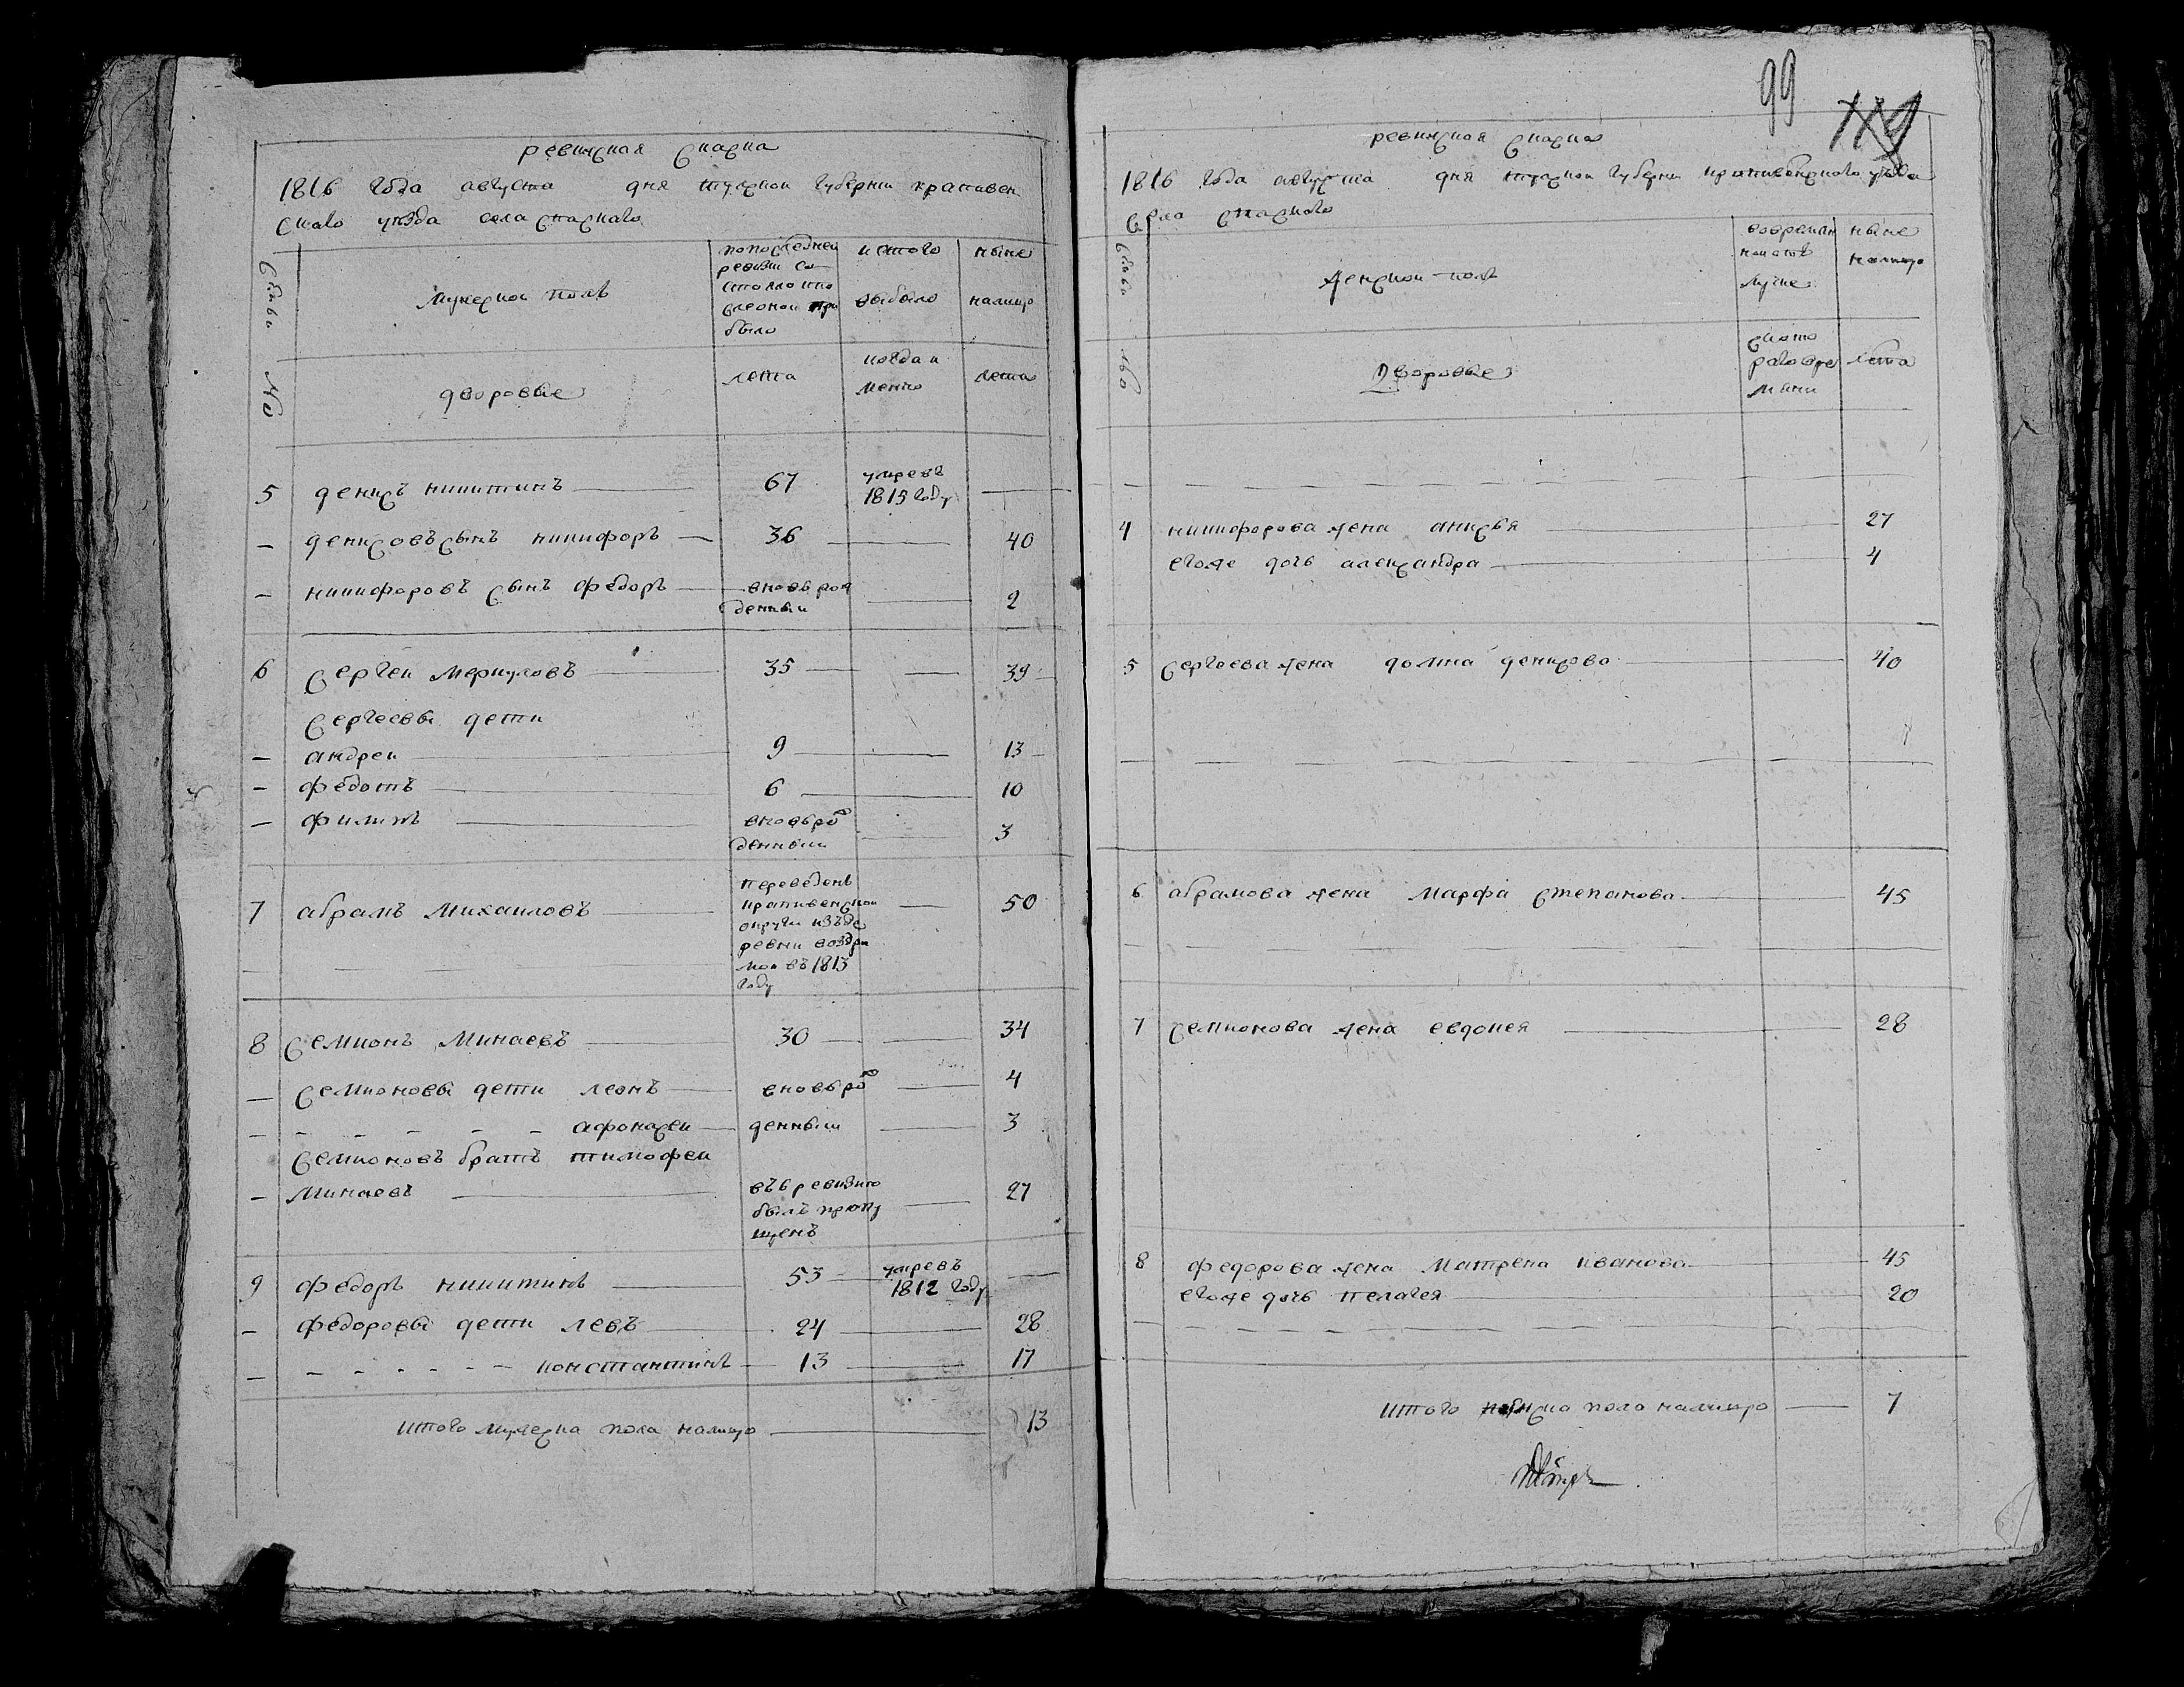 ревизская сказка
1816 года августа дня тулской губернии крапивен
скаго уезда села спаскаго
семьи №
мужеской полъ
попоследней
ревизии со
стояло ипо
сле оной при
было
исъ того
выбыло
ныне
налицо
дворовые
лета
когда и
менно
лета
5 денисъ никитинъ 67 умре въ
1815 году
— денисовъ сынъ никифоръ 36 40
— никифоровъ сынъ федоръ вновь рож
денныи 2
6 сергеи меркуловъ 35 39
сергеевы дети
— андреи 9 13
— федотъ 6 10
— филипъ вновьро
денныи 3
7 абрамъ михаиловъ переведенъ
крапивенской
округи изъ де
ревни
въ 1813
году 50
8 семионъ минаевъ 30 34
— семионовы дети леонъ вновьро 4
— афонасеи денныи 3
семионовъ братъ тимофеи
— минаевъ въ ревизию
былъ пропу
щенъ 27
9 федоръ никитинъ 53 умре въ
1812 году
— федоровы дети левъ 24 28
— константинъ 13 17
итого мужеска пола налицо 13
99
ревизская сказка
1816 года августа дня тулской губернии крапивенскаго уезда
села спаскаго
семьи №
женской полъ
вовремен
ной отъ
лучке
ныне
налицо
дворовые
съ кото
раго вре
мени
лета
4 никифорова жена анисья 27
егоже дочь александра 4
5 сергеева жена домна денисова 40
6 абрамова жена марфа степанова 45
7 семионова жена евдокея 28
8 федорова жена матрена иванова 45
егоже дочь пелагея 20
итого женска пола налицо 7